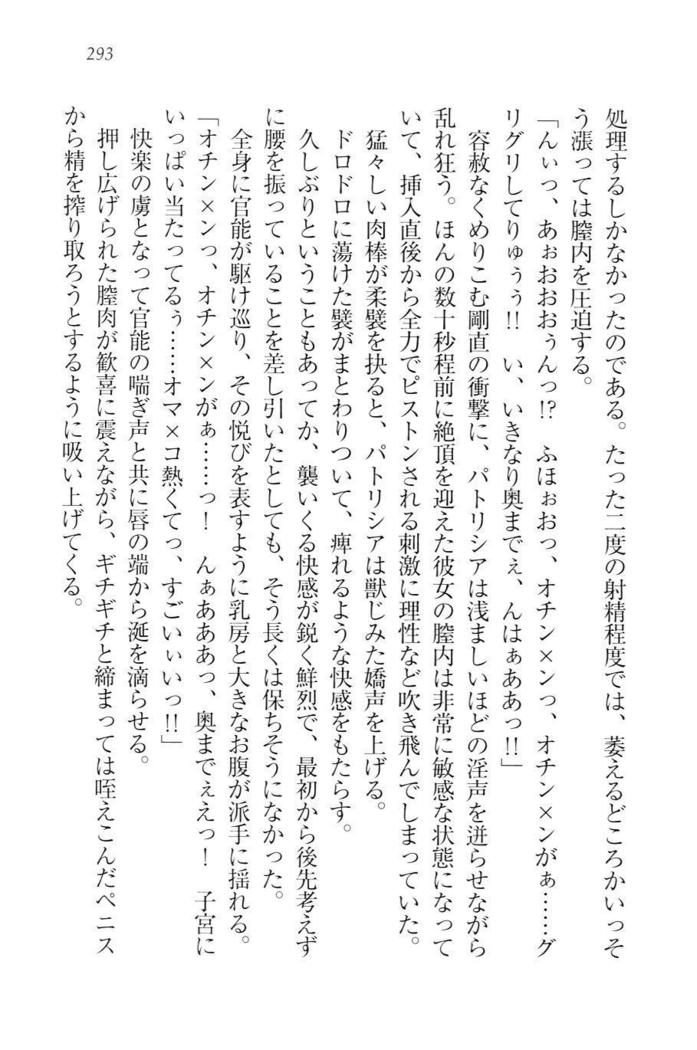 293
処理するしかなかったのである。たった二度の射精程度では、萎えるどころかいっそ
う漲っては膣内を圧迫する。
「んぃっ、あぉおおおぅんっ!?　ふほぉおっ、オチン×ンっ、オチン×ンがぁ……グ
リグリしてりゅぅぅ!!　い、いきなり奥までぇ、んはぁああっ!!」
容赦なくめりこむ剛直の衝撃に、パトリシアは浅ましいほどの淫声を迸らせながら
乱れ狂う。ほんの数十秒程前に絶頂を迎えた彼女の膣内は非常に敏感な状態になって
いて、挿入直後から全力でピストンされる刺激に理性など吹き飛んでしまっていた。
猛々しい肉棒が柔襞を抉ると、パトリシアは獣じみた嬌声を上げる。
ドロドロに蕩けた襞がまとわりついて、痺れるような快感をもたらす。
久しぶりということもあってか、襲いくる快感が鋭く鮮烈で、最初から後先考えず
に腰を振っていることを差し引いたとしても、そう長くは保ちそうになかった。
全身に官能が駆け巡り、その悦びを表すように乳房と大きなお腹が派手に揺れる。
「オチン×ンっ、オチン×ンがぁ……っ！　んぁあああっ、奥までぇえっ！　子宮に
いっぱい当たってるぅ……オマ×コ熱くてっ、すごいぃいっ!!」
快楽の虜となって官能の喘ぎ声と共に唇の端から涎を滴らせる。
押し広げられた膣肉が歓喜に震えながら、ギチギチと締まっては咥えこんだペニス
から精を搾り取ろうとするように吸い上げてくる。